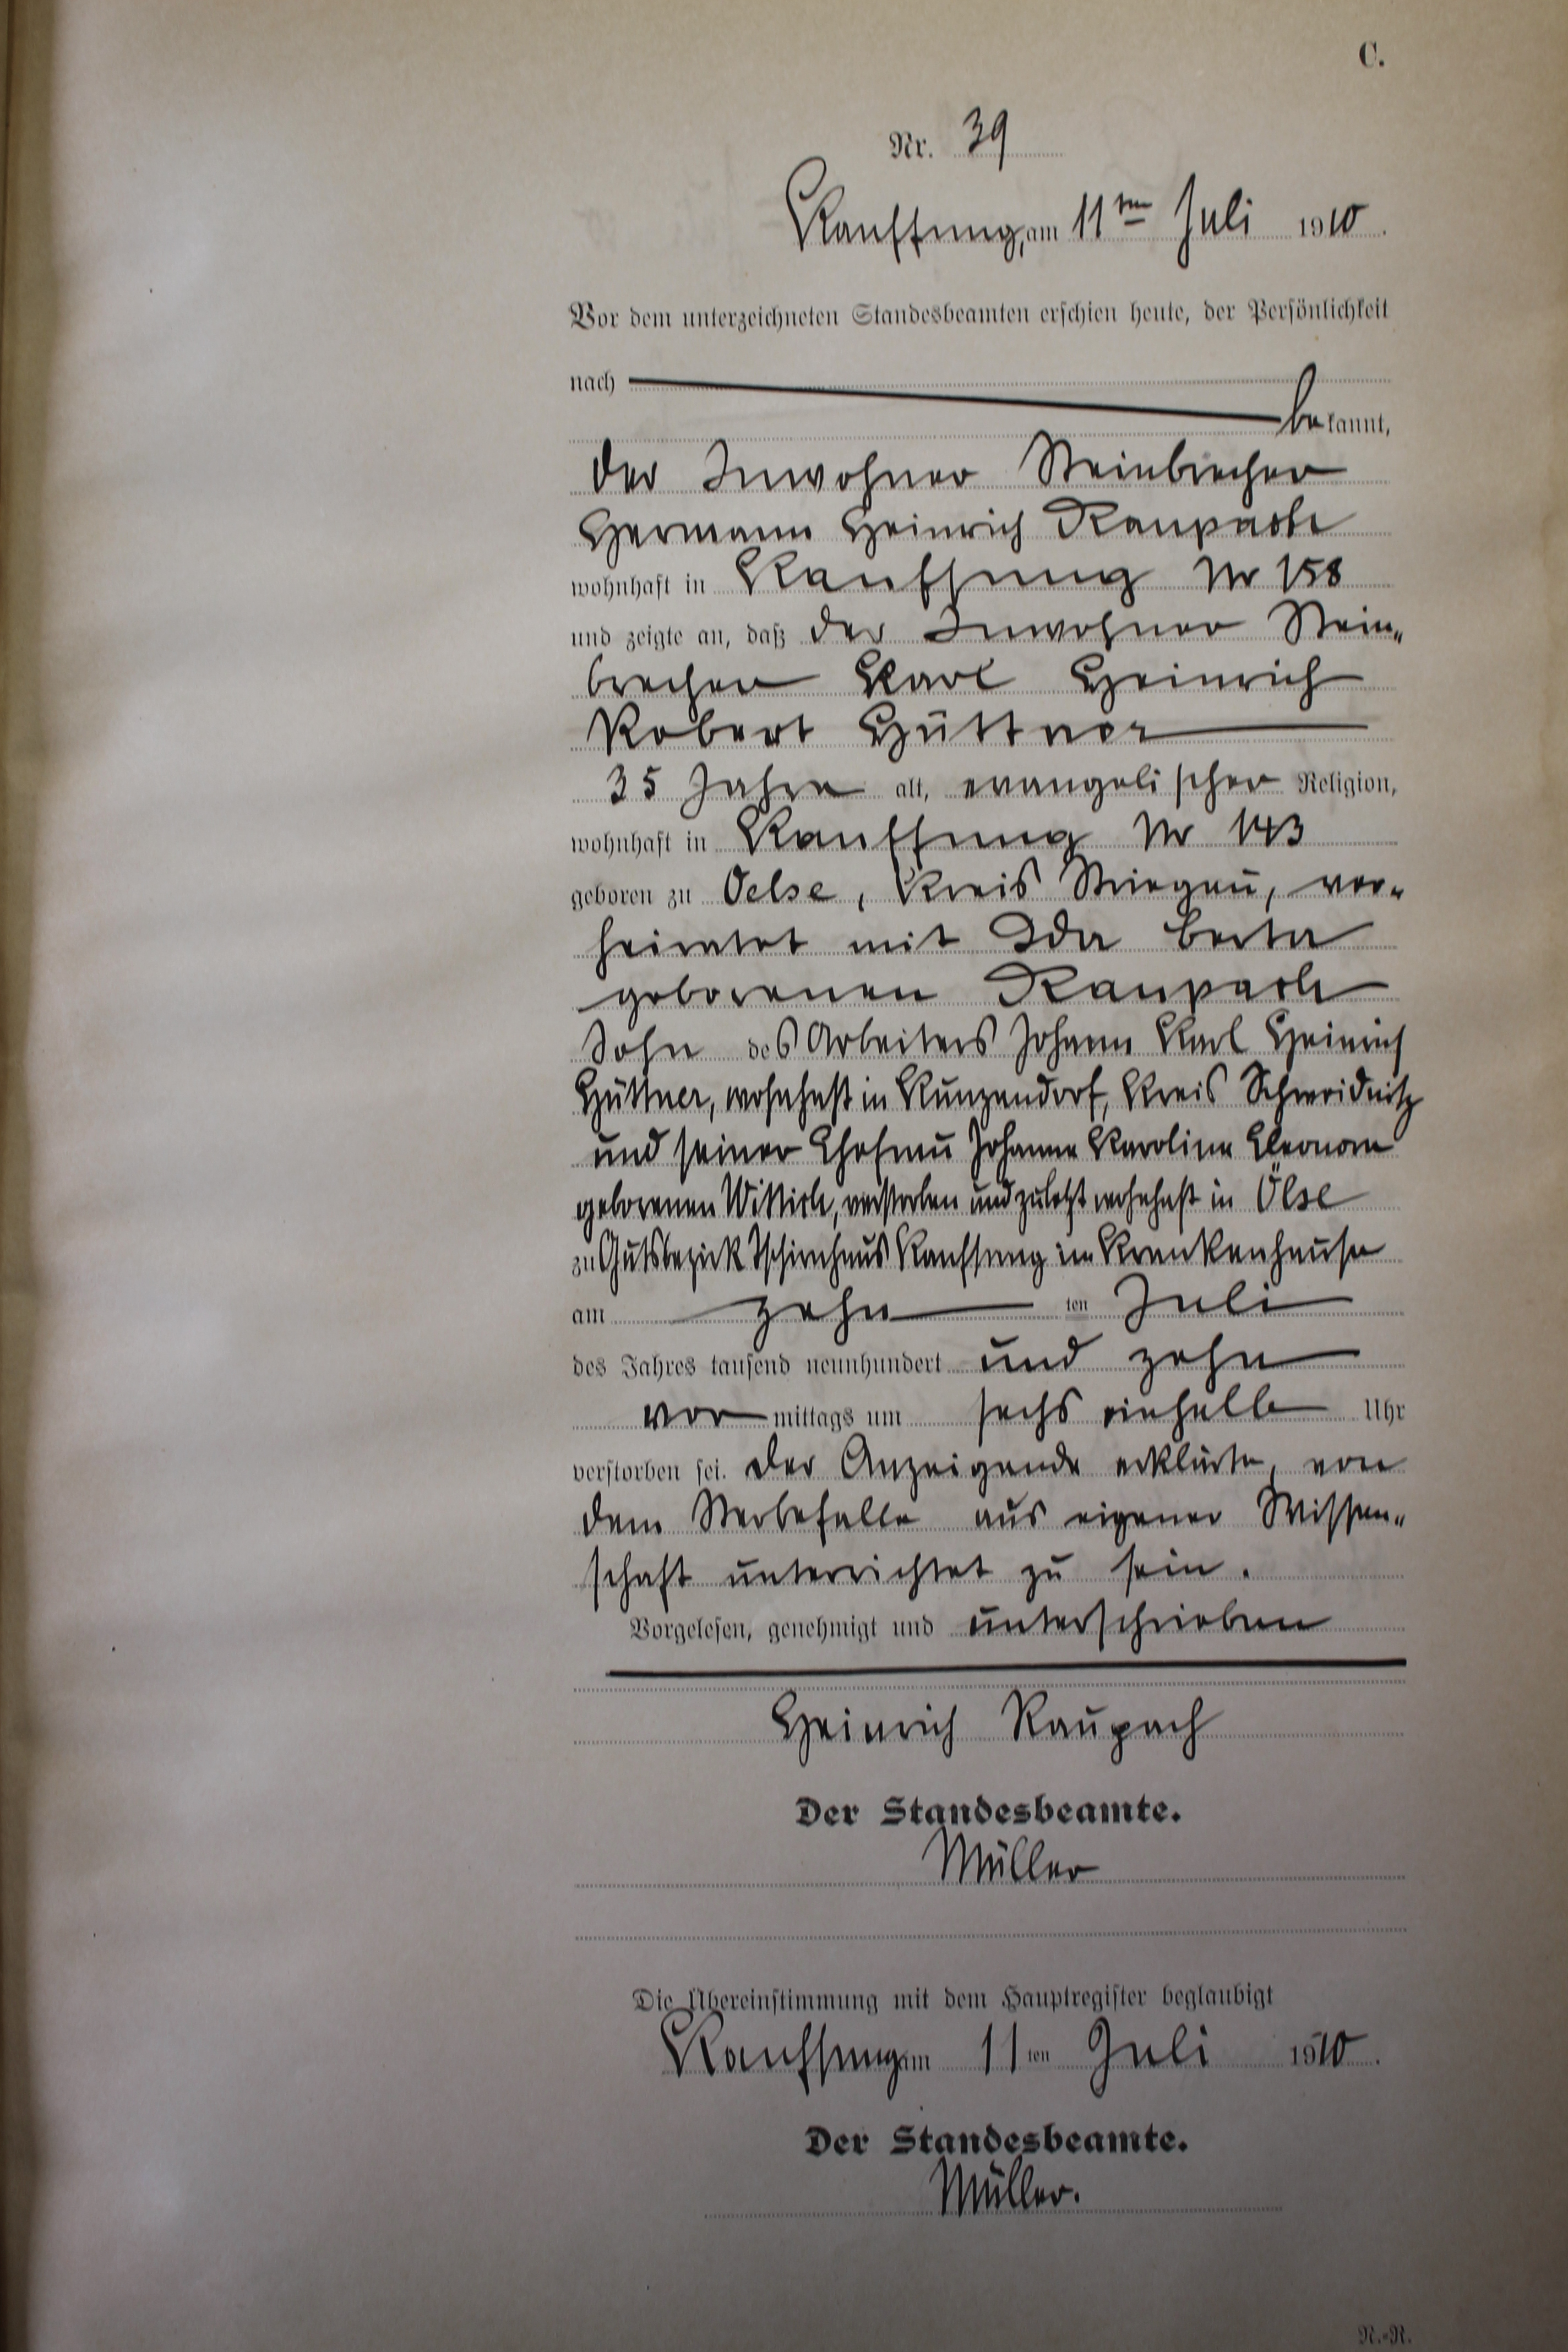 C.
Nr. 39
Kauffung, am 11ten Juli 1910.
Vor dem unterzeichneten Standesbeamten erschien heute, der Persönlichkeit
nach
bekannt,
der Inwohner Steinbrecher
Hermann Heinrich Raupach
wohnhaft in Kauffung Nr 158
und zeigte an, daß der Inwohner Stein-
brecher Karl Heinrich
Robert Hüttner
35 Jahre alt, evangelischer Religion,
wohnhaft in Kauffung Nr 143
geboren zu Oelse, Kreis Striegau, ver-
heiratet mit Ida Berta
geborenen Raupach
Sohn des Arbeiters Johann Karl Heinrich
Hüttner, wohnhaft in Kunzendorf, Kreis Schweidnitz
und seiner Ehefrau Johanne Karoline Eleonore
geborenen Wittich, verstorben und zuletzt wohnhaft in Ölse
zu Gutsbezirk Tschirnhaus Kauffung im Krankenhause
am zehn ten Juli
des Jahres tausend neunhundert und zehn
vor mittags um sechs einhalb Uhr
verstorben sei. Der Anzeigende erklärte, von
dem Sterbefalle aus eigener Wissen-
schaft unterrichtet zu sein.
Vorgelesen, genehmigt und unterschrieben
Heinrich Raupach
Der Standesbeamte.
Müller
Die Übereinstimmung mit dem Hauptregister beglaubigt
Kauffung am 11ten Juli 1910.
Der Standesbeamte.
Müller.
R.-R.